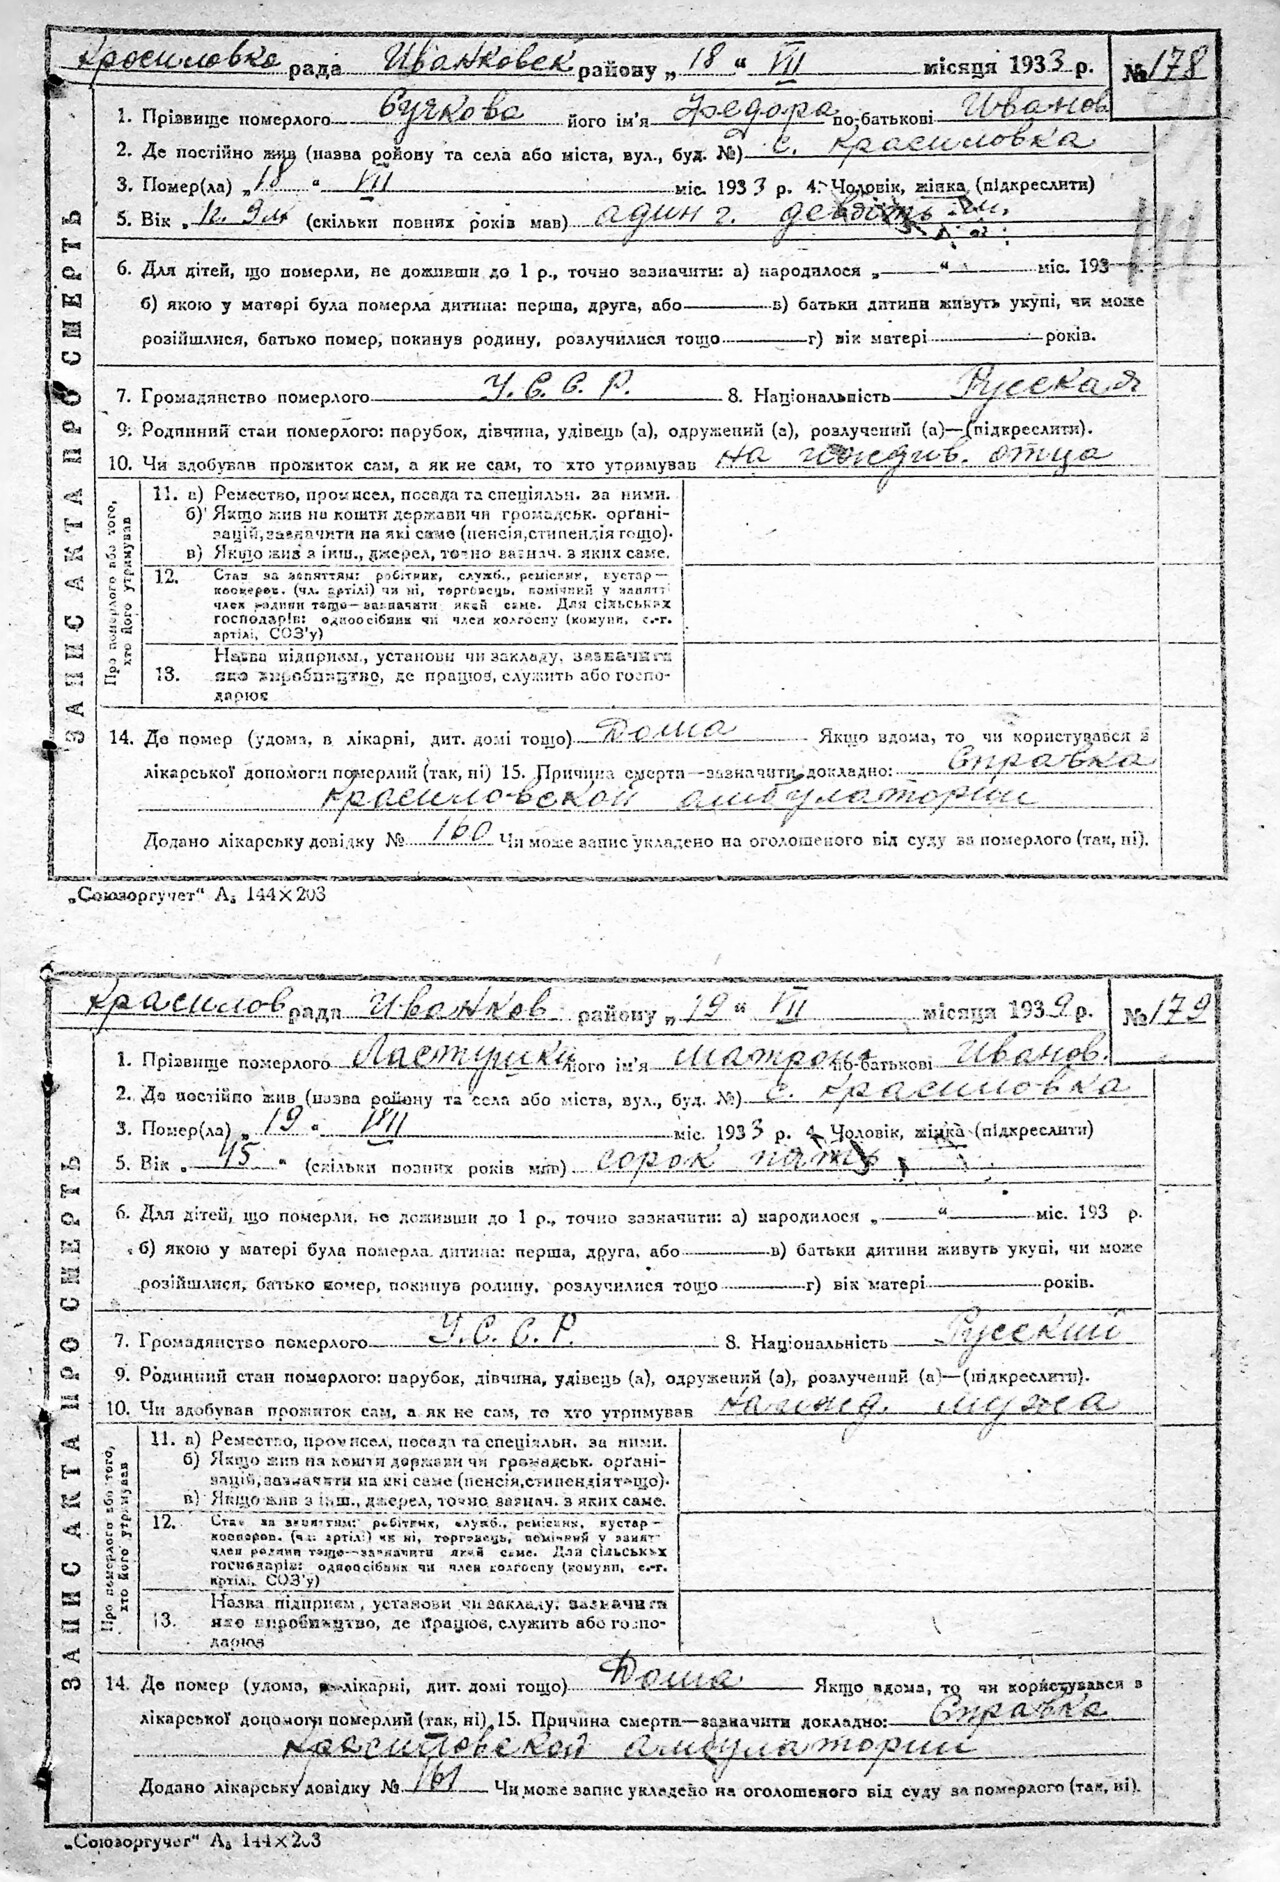 Красиловко рада Иванковск району „18“ VII місяця 1933 р. № 178
1. Прізвище померлого Сучкова його ім'я Федора по-батькові Иванов
2. Де постійно жив (назва району та села або міста, вул., буд. №) с. Красиловка
3. Помер(ла) „18“ VII міс. 1933 р. 4. Чоловік, жінка (підкреслити)
5. Вік „1г. 9м (скільки повних років мав) адин г. девять м.
6. Для дітей, що померли, не доживши до 1 р., точно зазначити: а) народилося „—“ — міс. 193 р.
б) якою у матері була померла дитина: перша, друга, або — в) батьки дитини живуть укупі, чи може
розійшлися, батько помер, покинув родину, розлучилися тощо — г) вік матері — років.
7. Громадянство померлого У.С.С.Р. 8. Національність Русская
9. Родинний стан померлого: парубок, дівчина, удівець (а), одружений (а), розлучений (а)—(підкреслити).
10. Чи здобував прожиток сам, а як не сам, то хто утримував на иждив. отца
11. а) Ремество, промисел, посада та спеціяльн. за ними.
б) Якщо жив на кошти держави чи громадськ. орґані-
зацій, зазначити на які саме (пенсія, стипендія тощо).
в) Якщо жив з інш., джерел, точно зазнач. з яких саме.
12. Стан за заняттям: робітник, служб., ремісник, кустар—
кооперов. (чл. артілі) чи ні, торговець, помічний у занятт
член родини тощо—зазначити який саме. Для сільських
господарів: одноосібник чи член колгоспу (комуни, с.-г.
артілі, СОЗ'у)
13. Назва підприєм., установи чи закладу, зазначити
яке виробництво, де працює, служить або госпо-
дарює
14. Де помер (удома, в лікарні, дит. домі тощо) Дома Якщо вдома, то чи користувався з
лікарської допомоги померлий (так, ні) 15. Причина смерти—зазначити докладно: Справка
Красиловской амбулатории
Додано лікарську довідку № 160 Чи може запис укладено на оголошеного від суду за померлого (так, ні).
ЗАПИС АКТА ПРО СМЕРТЬ
Про померлого або того,
хто його утримував
„Союзоргучет“ А₅ 144×203
Красилов рада Иванков району „19“ VII місяця 1939 р. № 179
1. Прізвище померлого його ім'я по-батькові Иванов.
2. Де постійно жив (назва району та села або міста, вул., буд. №) с. Красиловка
3. Помер(ла) „19“ VII міс. 1933 р. 4. Чоловік, жінка (підкреслити)
5. Вік „45“ (скільки повних років мав) сорок пять
6. Для дітей, що померли, не доживши до 1 р., точно зазначити: а) народилося „—“ — міс. 193 р.
б) якою у матері була померла дитина: перша, друга, або — в) батьки дитини живуть укупі, чи може
розійшлися, батько помер, покинув родину, розлучилися тощо — г) вік матері — років.
7. Громадянство померлого У.С.С.Р. 8. Національність Русский
9. Родинний стан померлого: парубок, дівчина, удівець (а), одружений (а), розлучений (а)—(підкреслити).
10. Чи здобував прожиток сам, а як не сам, то хто утримував на ижд. мужа
11. а) Ремество, промисел, посада та спеціяльн. за ними.
б) Якщо жив на кошти держави чи громадськ. орґані-
зацій, зазначити на які саме (пенсія, стипендія тощо).
в) Якщо жив з інш., джерел, точно зазнач. з яких саме.
12. Стан за заняттям: робітник, служб., ремісник, кустар—
кооперов. (чл. артілі) чи ні, торговець, помічний у занят
член родини тощо—зазначити який саме. Для сільських
господарів: одноосібник чи член колгоспу (комуни, с.-г.
артілі, СОЗ'у)
13. Назва підприєм., установи чи закладу, зазначити
яке виробництво, де працює, служить або госпо-
дарює
14. Де помер (удома, в лікарні, дит. домі тощо) Дома Якщо вдома, то чи користувався з
лікарської допомоги померлий (так, ні) 15. Причина смерти—зазначити докладно: Справка
Красиловской амбулатории
Додано лікарську довідку № 161 Чи може запис укладено на оголошеного від суду за померлого (так, ні).
ЗАПИС АКТА ПРО СМЕРТЬ
Про померлого або того,
хто його утримував
„Союзоргучет“ А₅ 144×203